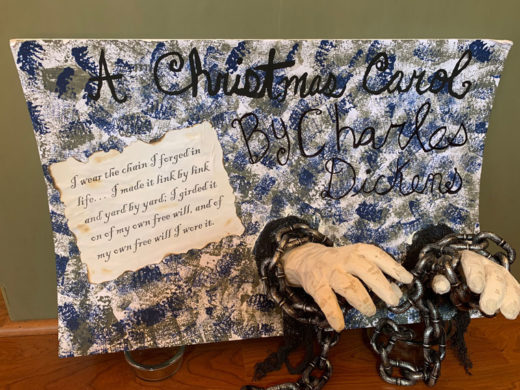 A Christmas Carol
By Charles
Dickens
I wear the chain I forged in
life... I made it link by link
and yard by yard; I girded it
on of my own free will, and of
my own free will I wore it.